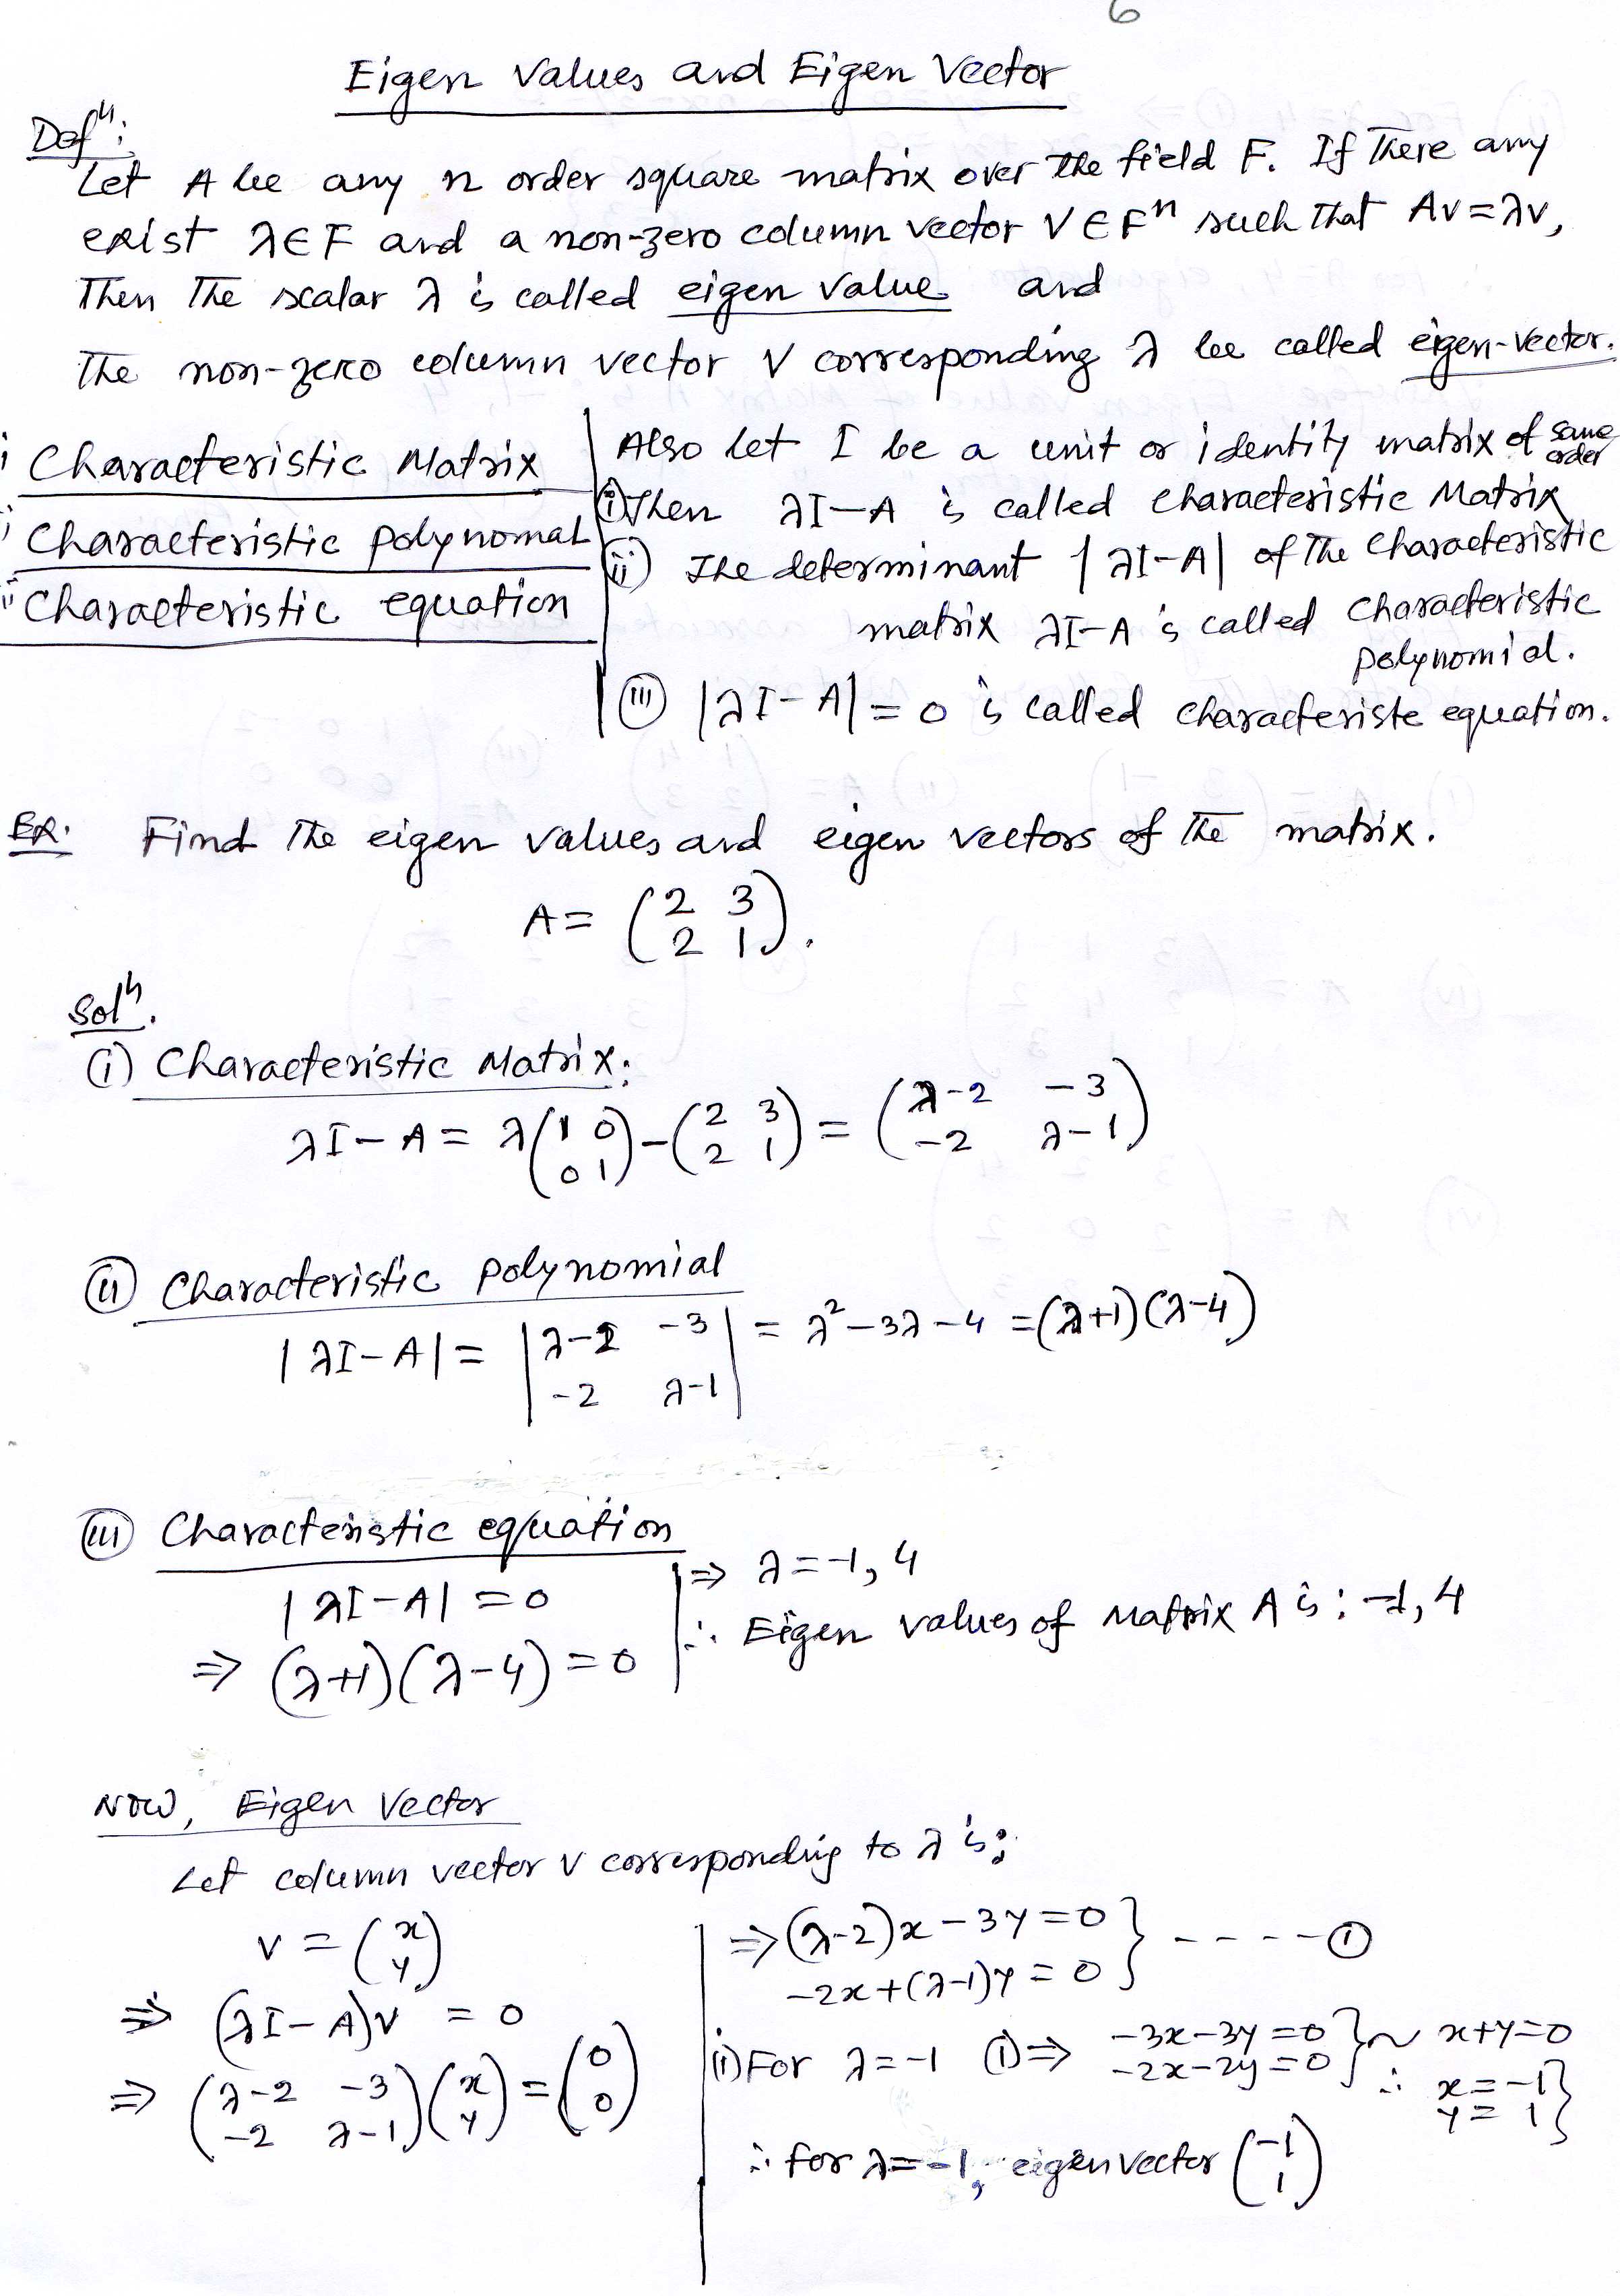 6
Eigen Values and Eigen Vector
Defⁿ:
Let A be any n order square matrix over the field F. If There any
exist λ∈F and a non-zero column vector V∈Fⁿ such that Av=λv,
Then The scalar λ is called eigen value and
The non-zero column vector V corresponding λ be called eigen-vector.
i Characteristic Matrix
Characteristic polynomal
Characteristic equation
Also let I be a unit or identity matrix of same order
(i) Then λI-A is called characteristic Matrix
(ii) The determinant |λI-A| of The characteristic
matrix λI-A is called characteristic
polynomial.
(iii) |λI-A|=0 is called characteriste equation.
Ex. Find The eigen values and eigen vectors of The matrix.
A = (2 3
2 1).
Solⁿ.
(i) Characteristic Matrix:
λI-A = λ(1 0
0 1)-(2 3
2 1) = (λ-2 -3
-2 λ-1)
(ii) Characteristic polynomial
|λI-A| = |λ-2 -3
-2 λ-1| = λ²-3λ-4 =(λ+1)(λ-4)
(iii) Characteristic equation
|λI-A| =0
⇒ (λ+1)(λ-4)=0
⇒ λ=-1, 4
∴ Eigen values of Matrix A is: -1, 4
Now, Eigen Vector
Let column vector v corresponding to λ is;
v = (x
y)
⇒ (λI-A)v = 0
⇒ (λ-2 -3
-2 λ-1)(x
y)=(0
0)
⇒(λ-2)x-3y=0
-2x+(λ-1)y=0 } - - - - (1)
(i) For λ=-1 (1)⇒ -3x-3y=0
-2x-2y=0 } ~ x+y=0
∴ x=-1
y= 1}
∴ for λ=-1, eigen vector (-1
1)